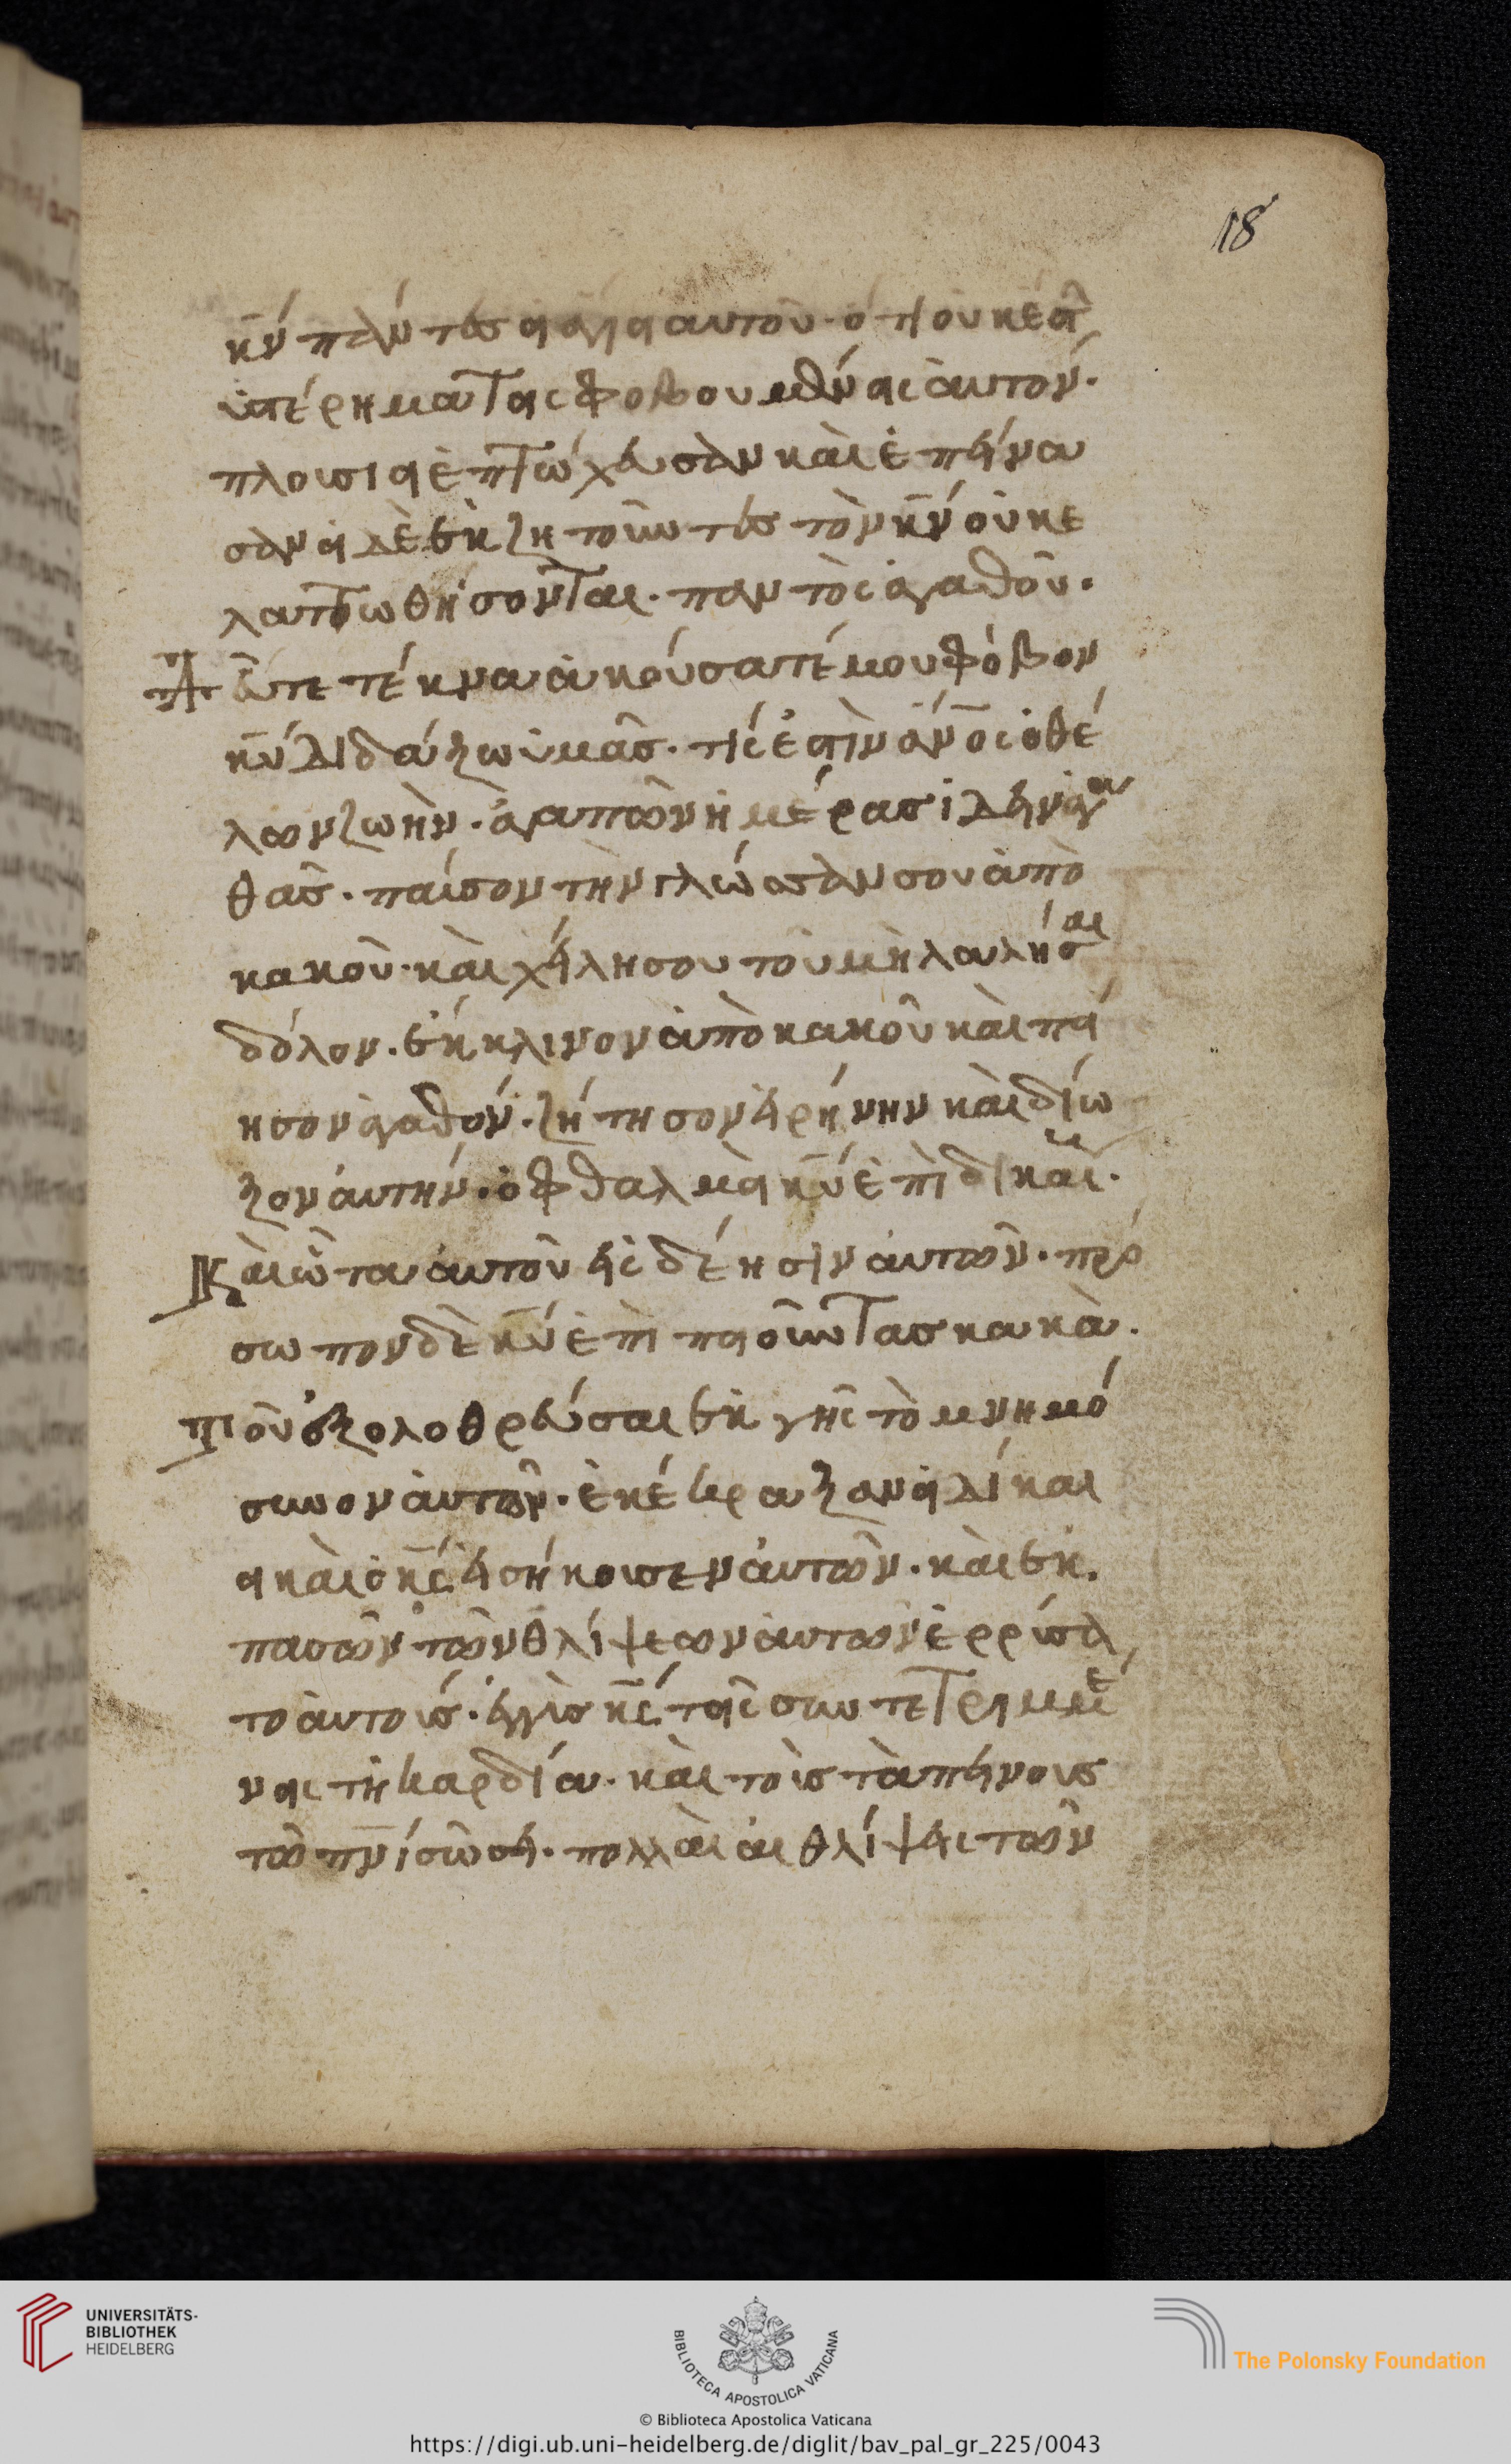 18
κ̅ν̅ πάντες οι άγιοι αυτού· ότι ουκ έστ̑
υστέρημα τοις φοβουμένοις αυτόν·
πλουσιοι επτώχευσαν και επείνα
σαν οι δε εκζητούντες τον κ̅ν̅ ουκ ε
λαττωθήσονται· παντός αγαθού·
Δεύτε τέκνα ακούσατέ μου φόβον
κ̅υ̅ διδάξω υμάς· τίς έστιν α̅ν̅ο̅ς̅ ο θέ
λων ζωήν· αγαπών ημέρας ιδείν αγα
θάς· παύσον την γλώσσαν σου από
κακού· και χείλη σου του μη λαλήσαι
δόλον· έκκλινον από κακού και ποί
ησον αγαθόν· ζήτησον ειρήνην και δίω
ξον αυτήν· οφθαλμοι κ̅υ̅ επι δικαί·
Και ώτα αυτού εις δέησιν αυτών· πρό
σωπον δε κ̅υ̅ επι ποιούντας κακά·
Του εξολοθρεύσαι εκ γης το μνημό
συνον αυτών· εκέκραξαν οι δίκαι
οι και ο κ̅ς̅ εισήκουσεν αυτών· και εκ
πασών των θλίψεων αυτών ερρύσα
το αυτούς· εγγύς κ̅ς̅ τοις συντετριμμέ
νοις τη καρδία· και τους ταπείνους
τω π̅ν̅ι̅ σώσει· πολλαι αι θλίψεις των
UNIVERSITÄTS-
BIBLIOTHEK
HEIDELBERG
BIBLIOTECA APOSTOLICA VATICANA
© Biblioteca Apostolica Vaticana
The Polonsky Foundation
https://digi.ub.uni-heidelberg.de/diglit/bav_pal_gr_225/0043